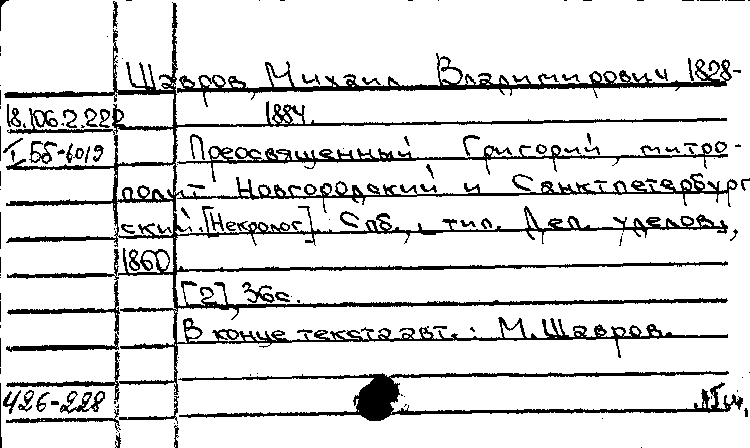 Шавров, Михаил Владимирович, 1828-
18.106.2.220 1884.
Преосвященный Григорий, митро-
полит Новгородский и Санктпетербург
ский. [Некролог]. Спб., тип. Деп. уделов,
1860.
[2], 36с.
В конце текста авт.: М. Шавров.
426-228